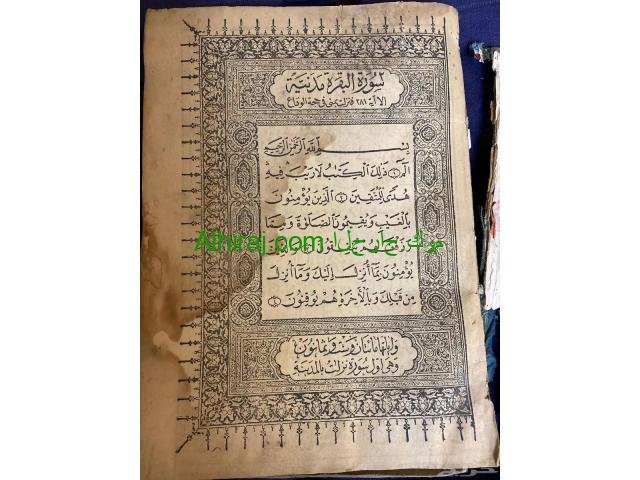 سورة البقرة مدنية
الا آية ٢٨١ فنزلت بمنى في حجة الوداع
بِسْمِ اللَّهِ الرَّحْمَٰنِ الرَّحِيمِ
الٓمٓ ۝١ ذَٰلِكَ الْكِتَٰبُ لَا رَيْبَ فِيهِ
هُدًى لِلْمُتَّقِينَ ۝٢ الَّذِينَ يُؤْمِنُونَ
بِالْغَيْبِ وَيُقِيمُونَ الصَّلَوٰةَ وَمِمَّا
Alhiraj.com الحراج.كوم
يُؤْمِنُونَ بِمَا أُنْزِلَ إِلَيْكَ وَمَا أُنْزِلَ
مِنْ قَبْلِكَ وَبِالْآخِرَةِ هُمْ يُوقِنُونَ ۝٤
وآياتها مائتان وست وثمانون
وهي أول سورة نزلت بالمدينة